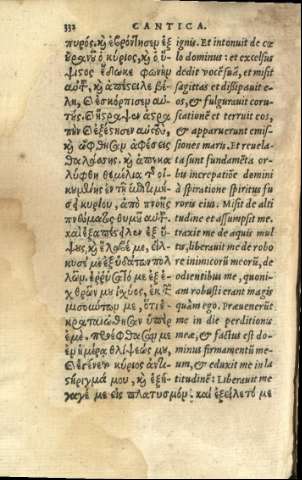 332 CANTICA.
πυρός, καὶ ἐβρόντησεν ἐξ
οὐρανοῦ ὁ κύριος, καὶ ὁ ὕ-
ψιστος ἔδωκε φωνὴν
αὐτοῦ, καὶ ἀπέστειλε βέ-
λη, καὶ ἐσκόρπισεν αὐ-
τούς, καὶ ἤστραψεν ἀστρα-
πὴν καὶ ἐξέστησεν αὐτούς,
καὶ ὤφθησαν ἀφέσεις
θαλάσσης, καὶ ἀπεκα-
λύφθη θεμέλια τῆς οἰ-
κουμένης ἐν τῇ ἐπιτιμή-
σει κυρίου, ἀπὸ πνοῆς
πνεύματος θυμοῦ αὐτοῦ.
καὶ ἐξαπέστειλεν ἐξ ὕ-
ψους, καὶ ἔλαβέ με, εἵλ-
κυσέ με ἐξ ὑδάτων πολ-
λῶν. ἐῤῥύσατό με ἐξ ἐ-
χθρῶν μου ἰσχύος, ἐκ τῶν
μισούντων με, ὅτι ἐ-
κραταιώθησαν ὑπὲρ
ἐμέ. προέφθασάν με
ἐν ἡμέρᾳ θλίψεώς μου,
καὶ ἐγένετο κύριος ἀντι-
στήριγμά μου, καὶ ἐξή-
γαγέ με εἰς πλατυσμόν, καὶ ἐξείλετό με
ignis. Et intonuit de cæ
lo dominus: et excelsus
dedit vocẽ suã, et misit
sagittas et dissipauit e-
os, & fulgurauit coru-
scationẽ et terruit eos,
& apparuerunt emis-
siones maris. Et reuela-
ta sunt fundamẽta or-
bis increpatiõe domini
à spiratione spiritus fu
roris eius. Misit de alti
tudine et assumpsit me,
traxit me de aquis mul
tis, liberauit me de robo
re inimicorũ meorũ, de
odientibus me, quoni-
am robusti erant magis
quàm ego. Præuenerũt
me in die perditionis
meæ, & factus est do-
minus firmamentũ me-
um, & eduxit me in la
titudinẽ: Liberauit me